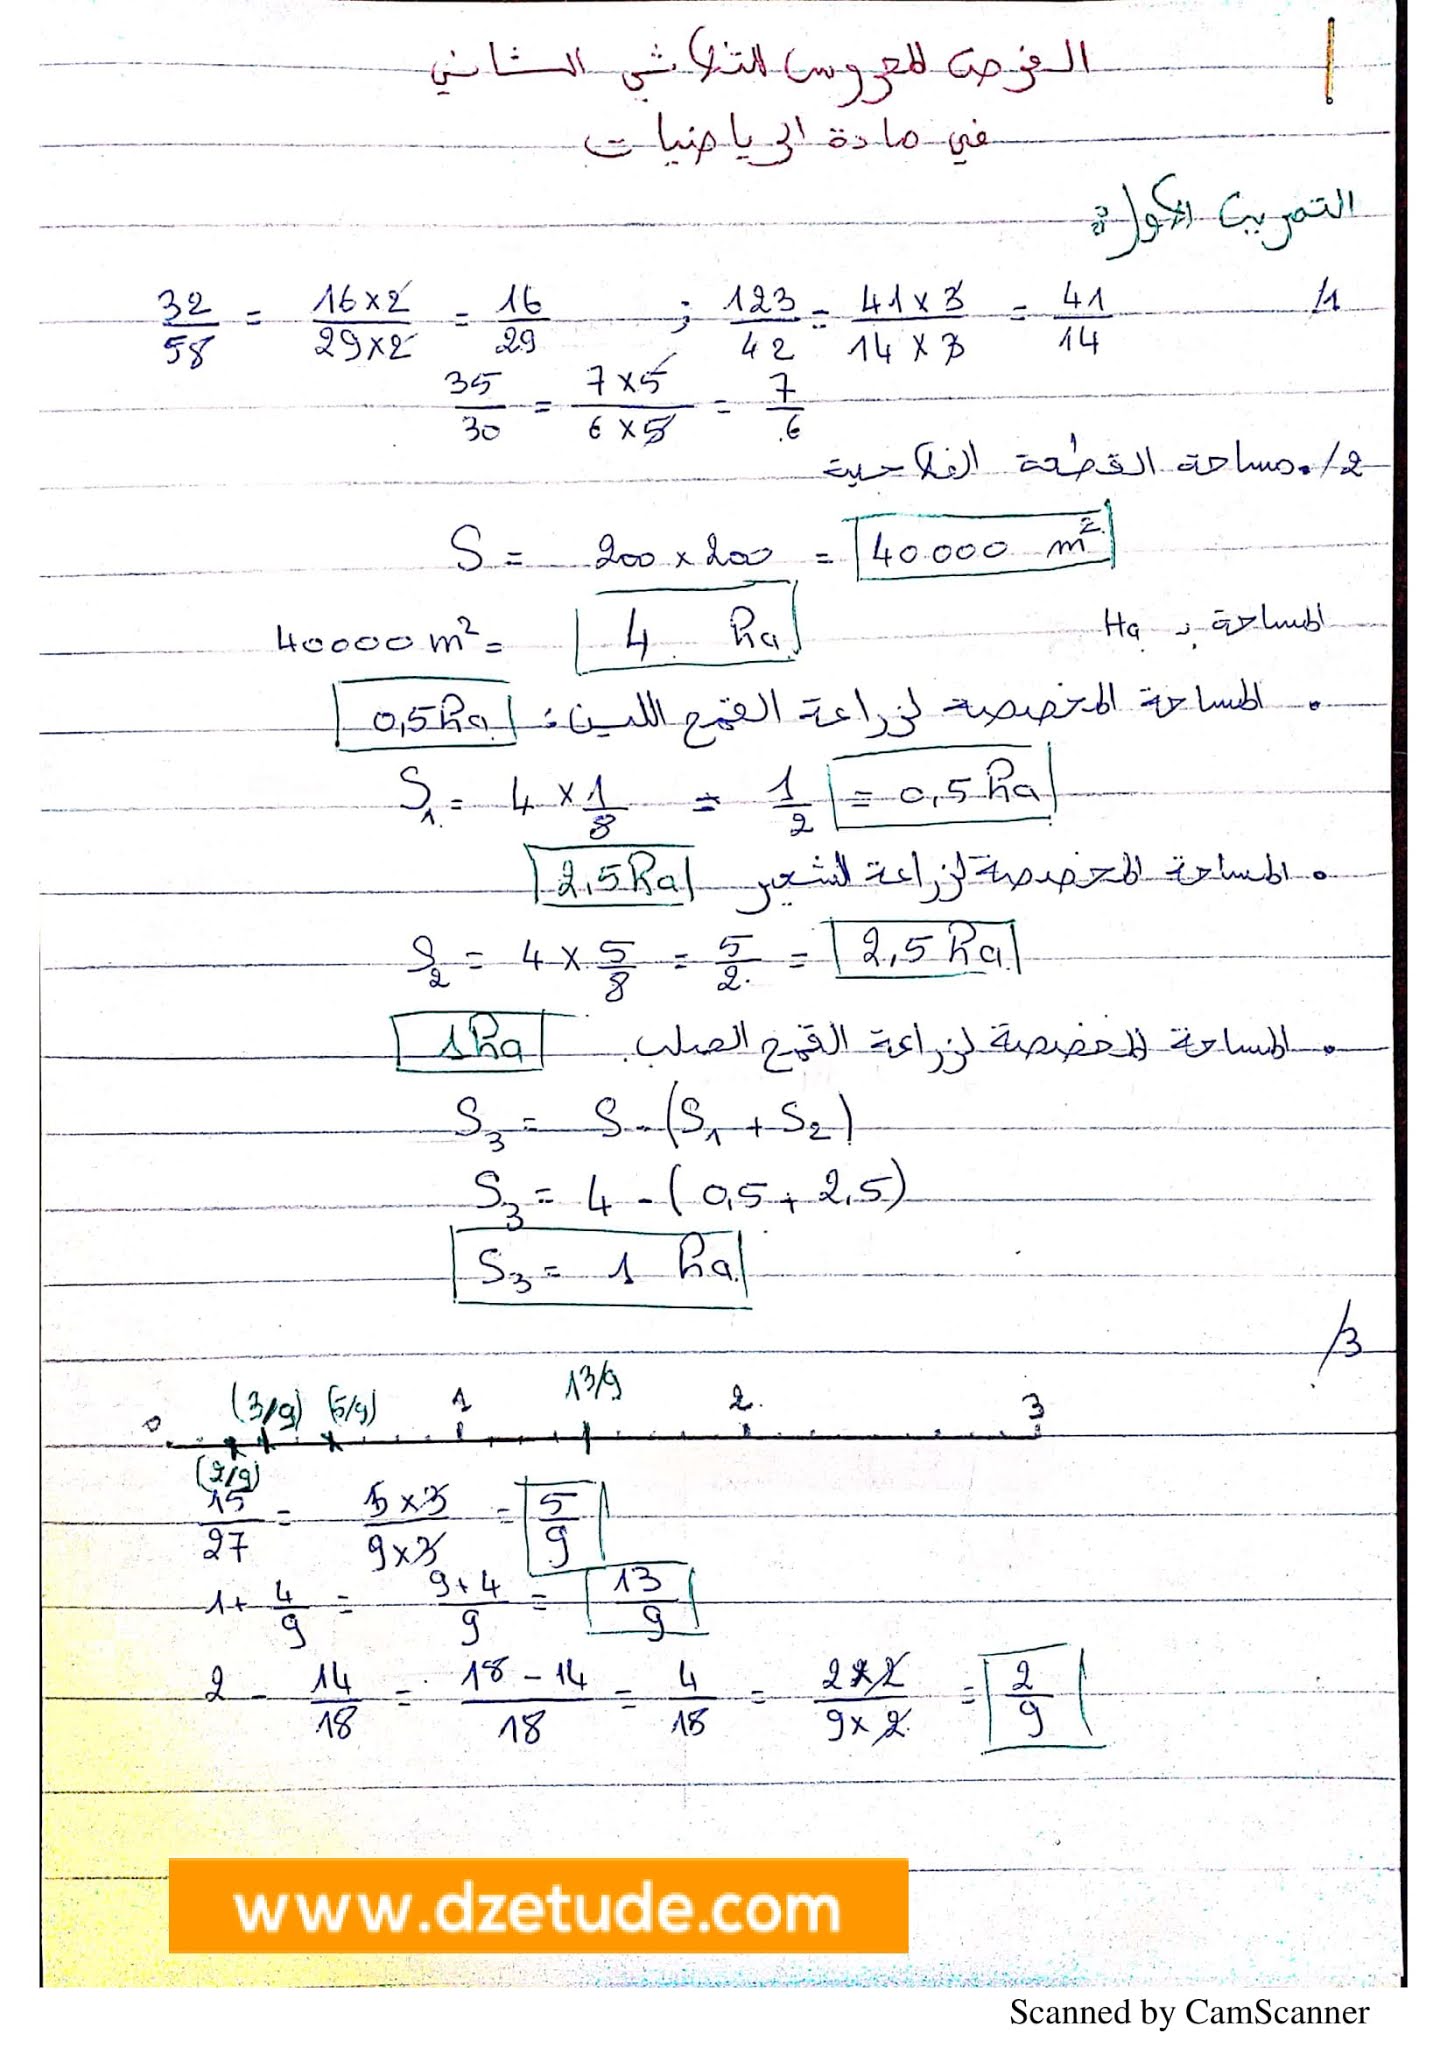 الفرض المحروس للثلاثي الثاني
في مادة الرياضيات
التمرين الأول:
1/ 32/58 = 16×2/29×2 = 16/29 ; 123/42 = 41×3/14×3 = 41/14
35/30 = 7×5/6×5 = 7/6
2/. مساحة القطعة الفلاحية
S = 200 × 200 = 40000 m²
المساحة بـ Ha 40000 m² = 4 ha
. المساحة المخصصة لزراعة القمح اللين: 0,5 ha
S₁ = 4 × 1/8 = 1/2 = 0,5 ha
. المساحة المخصصة لزراعة الشعير 2,5 ha
S₂ = 4 × 5/8 = 5/2 = 2,5 ha
. المساحة المخصصة لزراعة القمح الصلب. 1 ha
S₃ = S - (S₁ + S₂)
S₃ = 4 - (0,5 + 2,5)
S₃ = 1 ha
3/
0 (2/9) (3/9) (5/9) 1 13/9 2 3
15/27 = 5×3/9×3 = 5/9
1 + 4/9 = 9+4/9 = 13/9
2 - 14/18 = 18-14/18 = 4/18 = 2×2/9×2 = 2/9
www.dzetude.com
Scanned by CamScanner